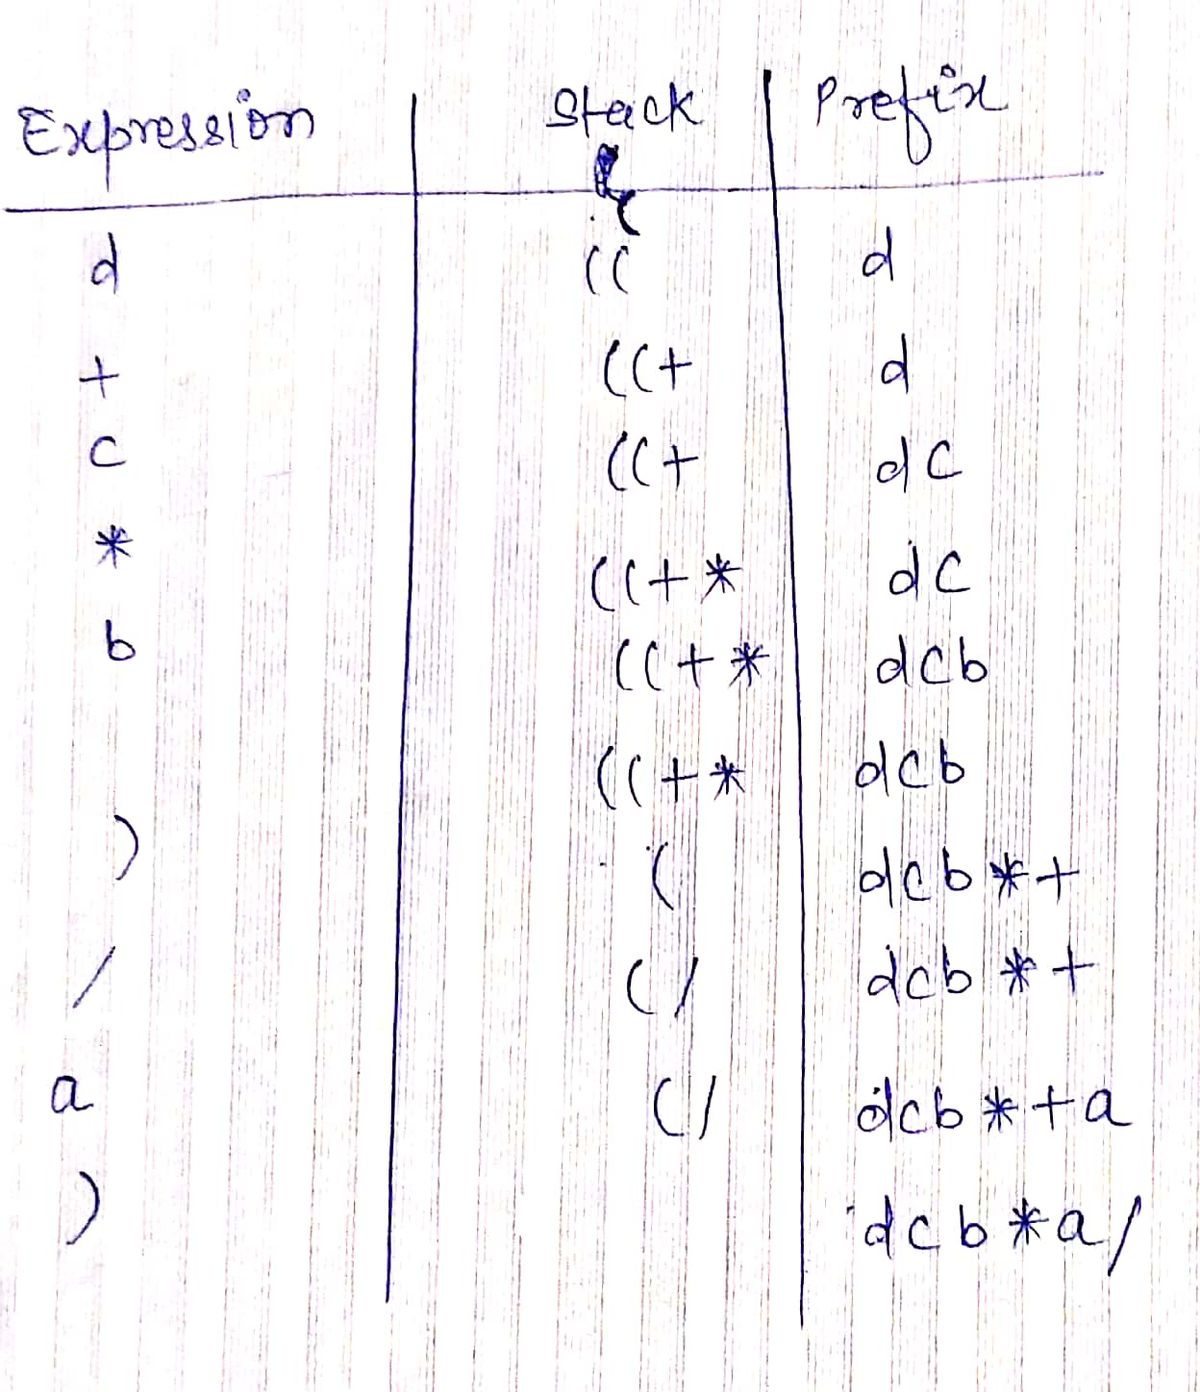 Expression Stack Prefix
(
d (( d
+ ((+ d
c ((+ dc
* ((+* dc
b ((+* dcb
((+* dcb
) ( dcb*+
/ (/ dcb*+
a (/ dcb*+a
) dcb*a/